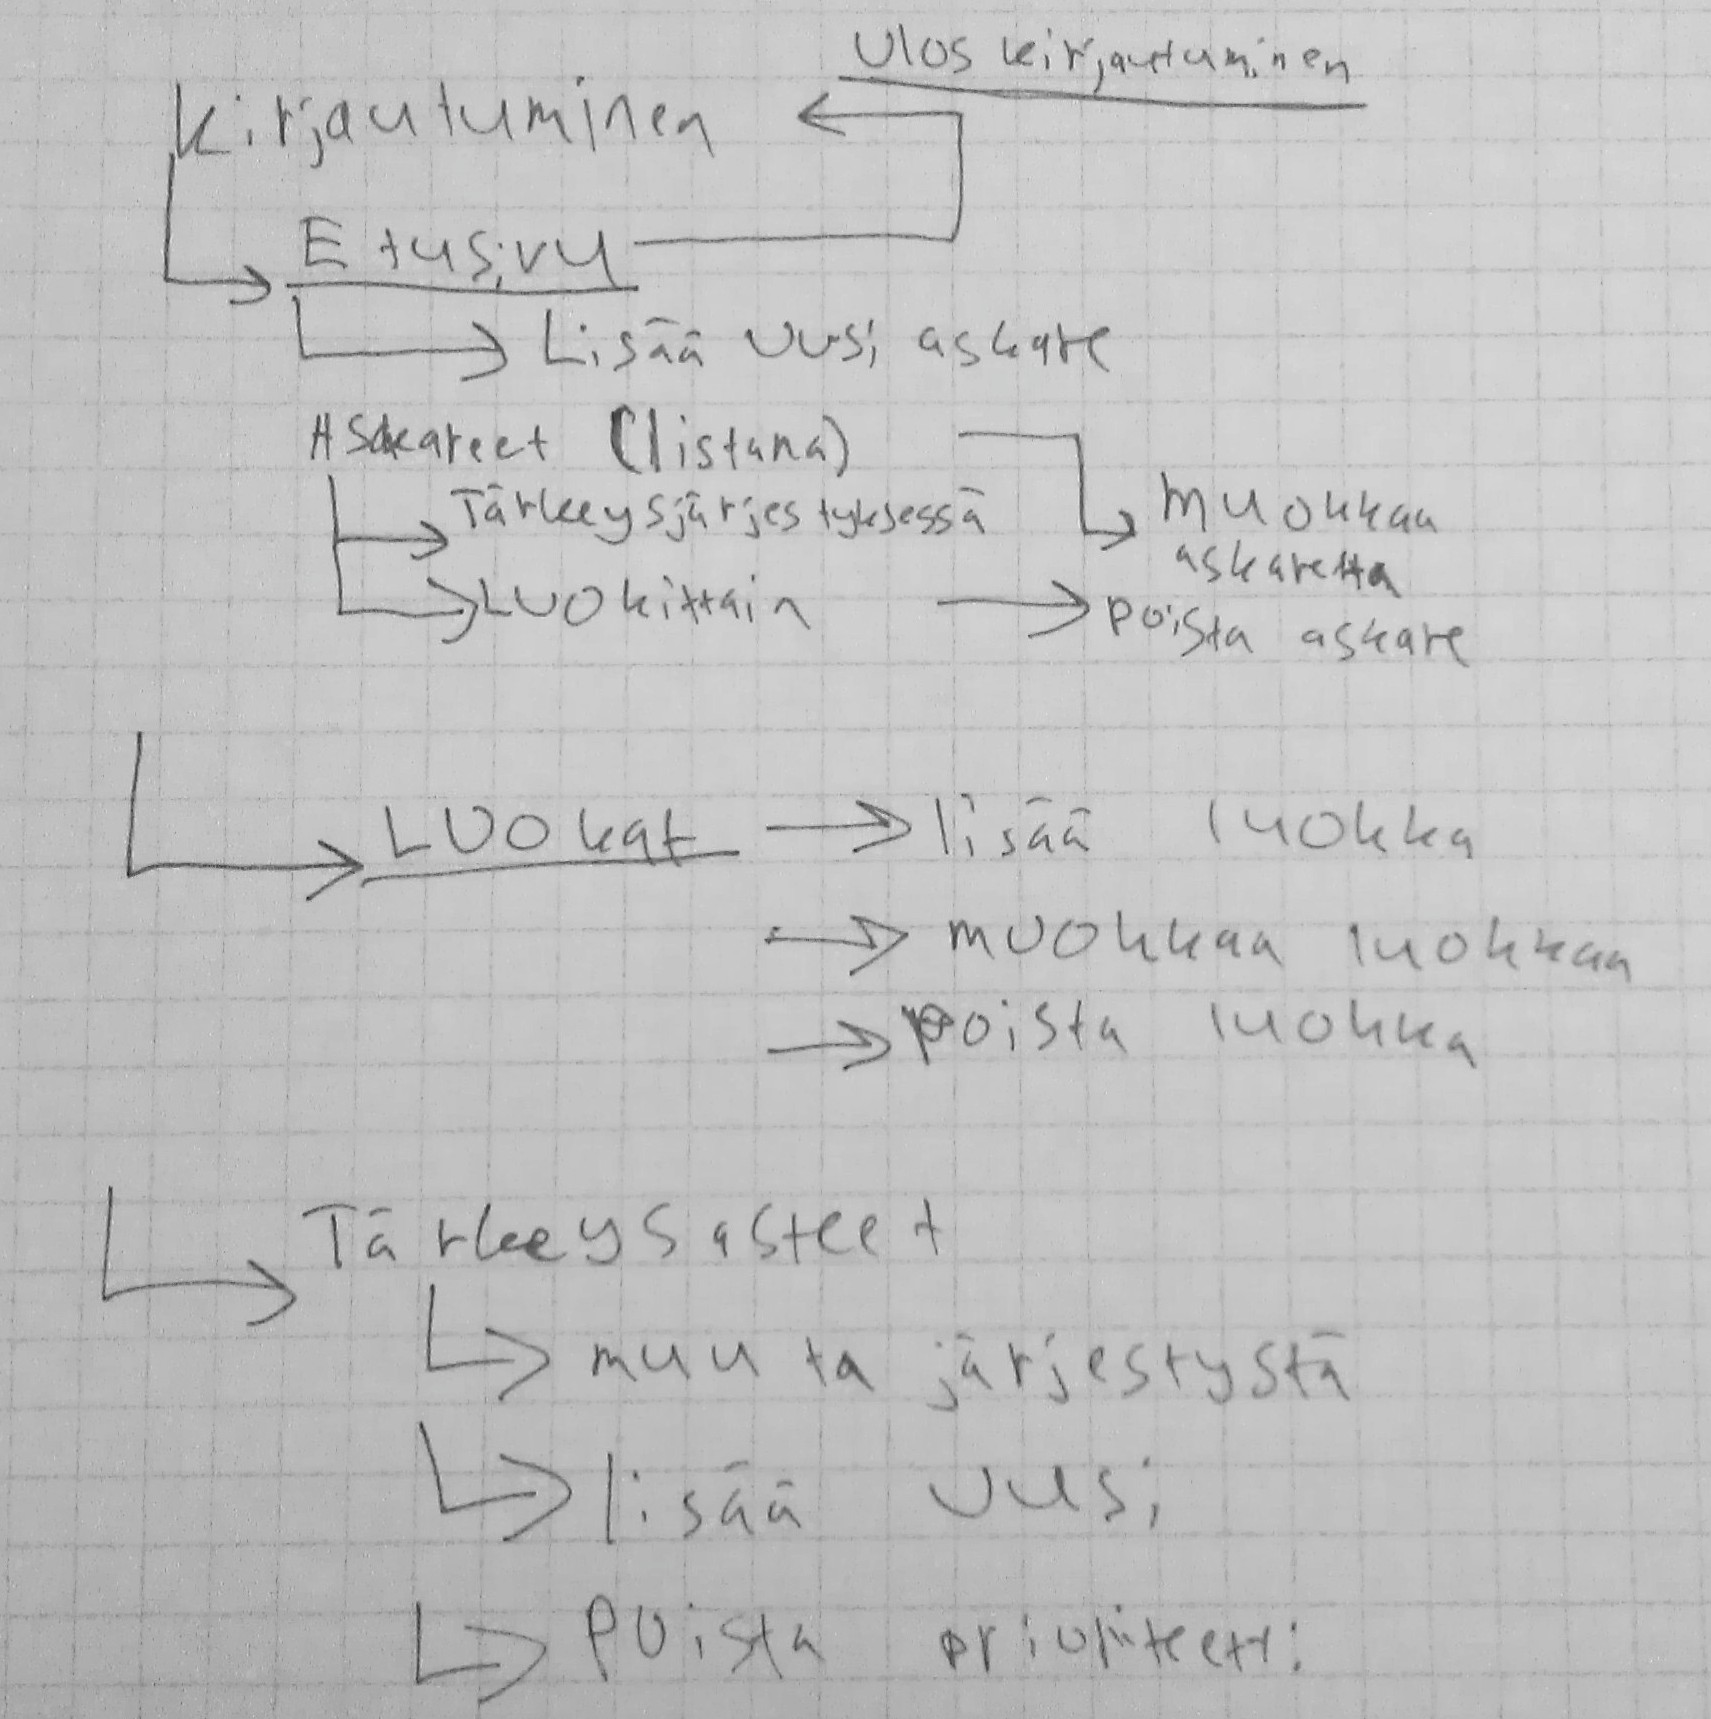 Ulos kirjautuminen
Kirjautuminen
Etusivu
Lisää uusi askare
Askareet (listana)
Tärkeysjärjestyksessä
muokkaa
askaretta
Luokittain
poista askare
Luokat
lisää luokka
muokkaa luokkaa
poista luokka
Tärkeysasteet
muuta järjestystä
lisää uusi
poista prioriteetti